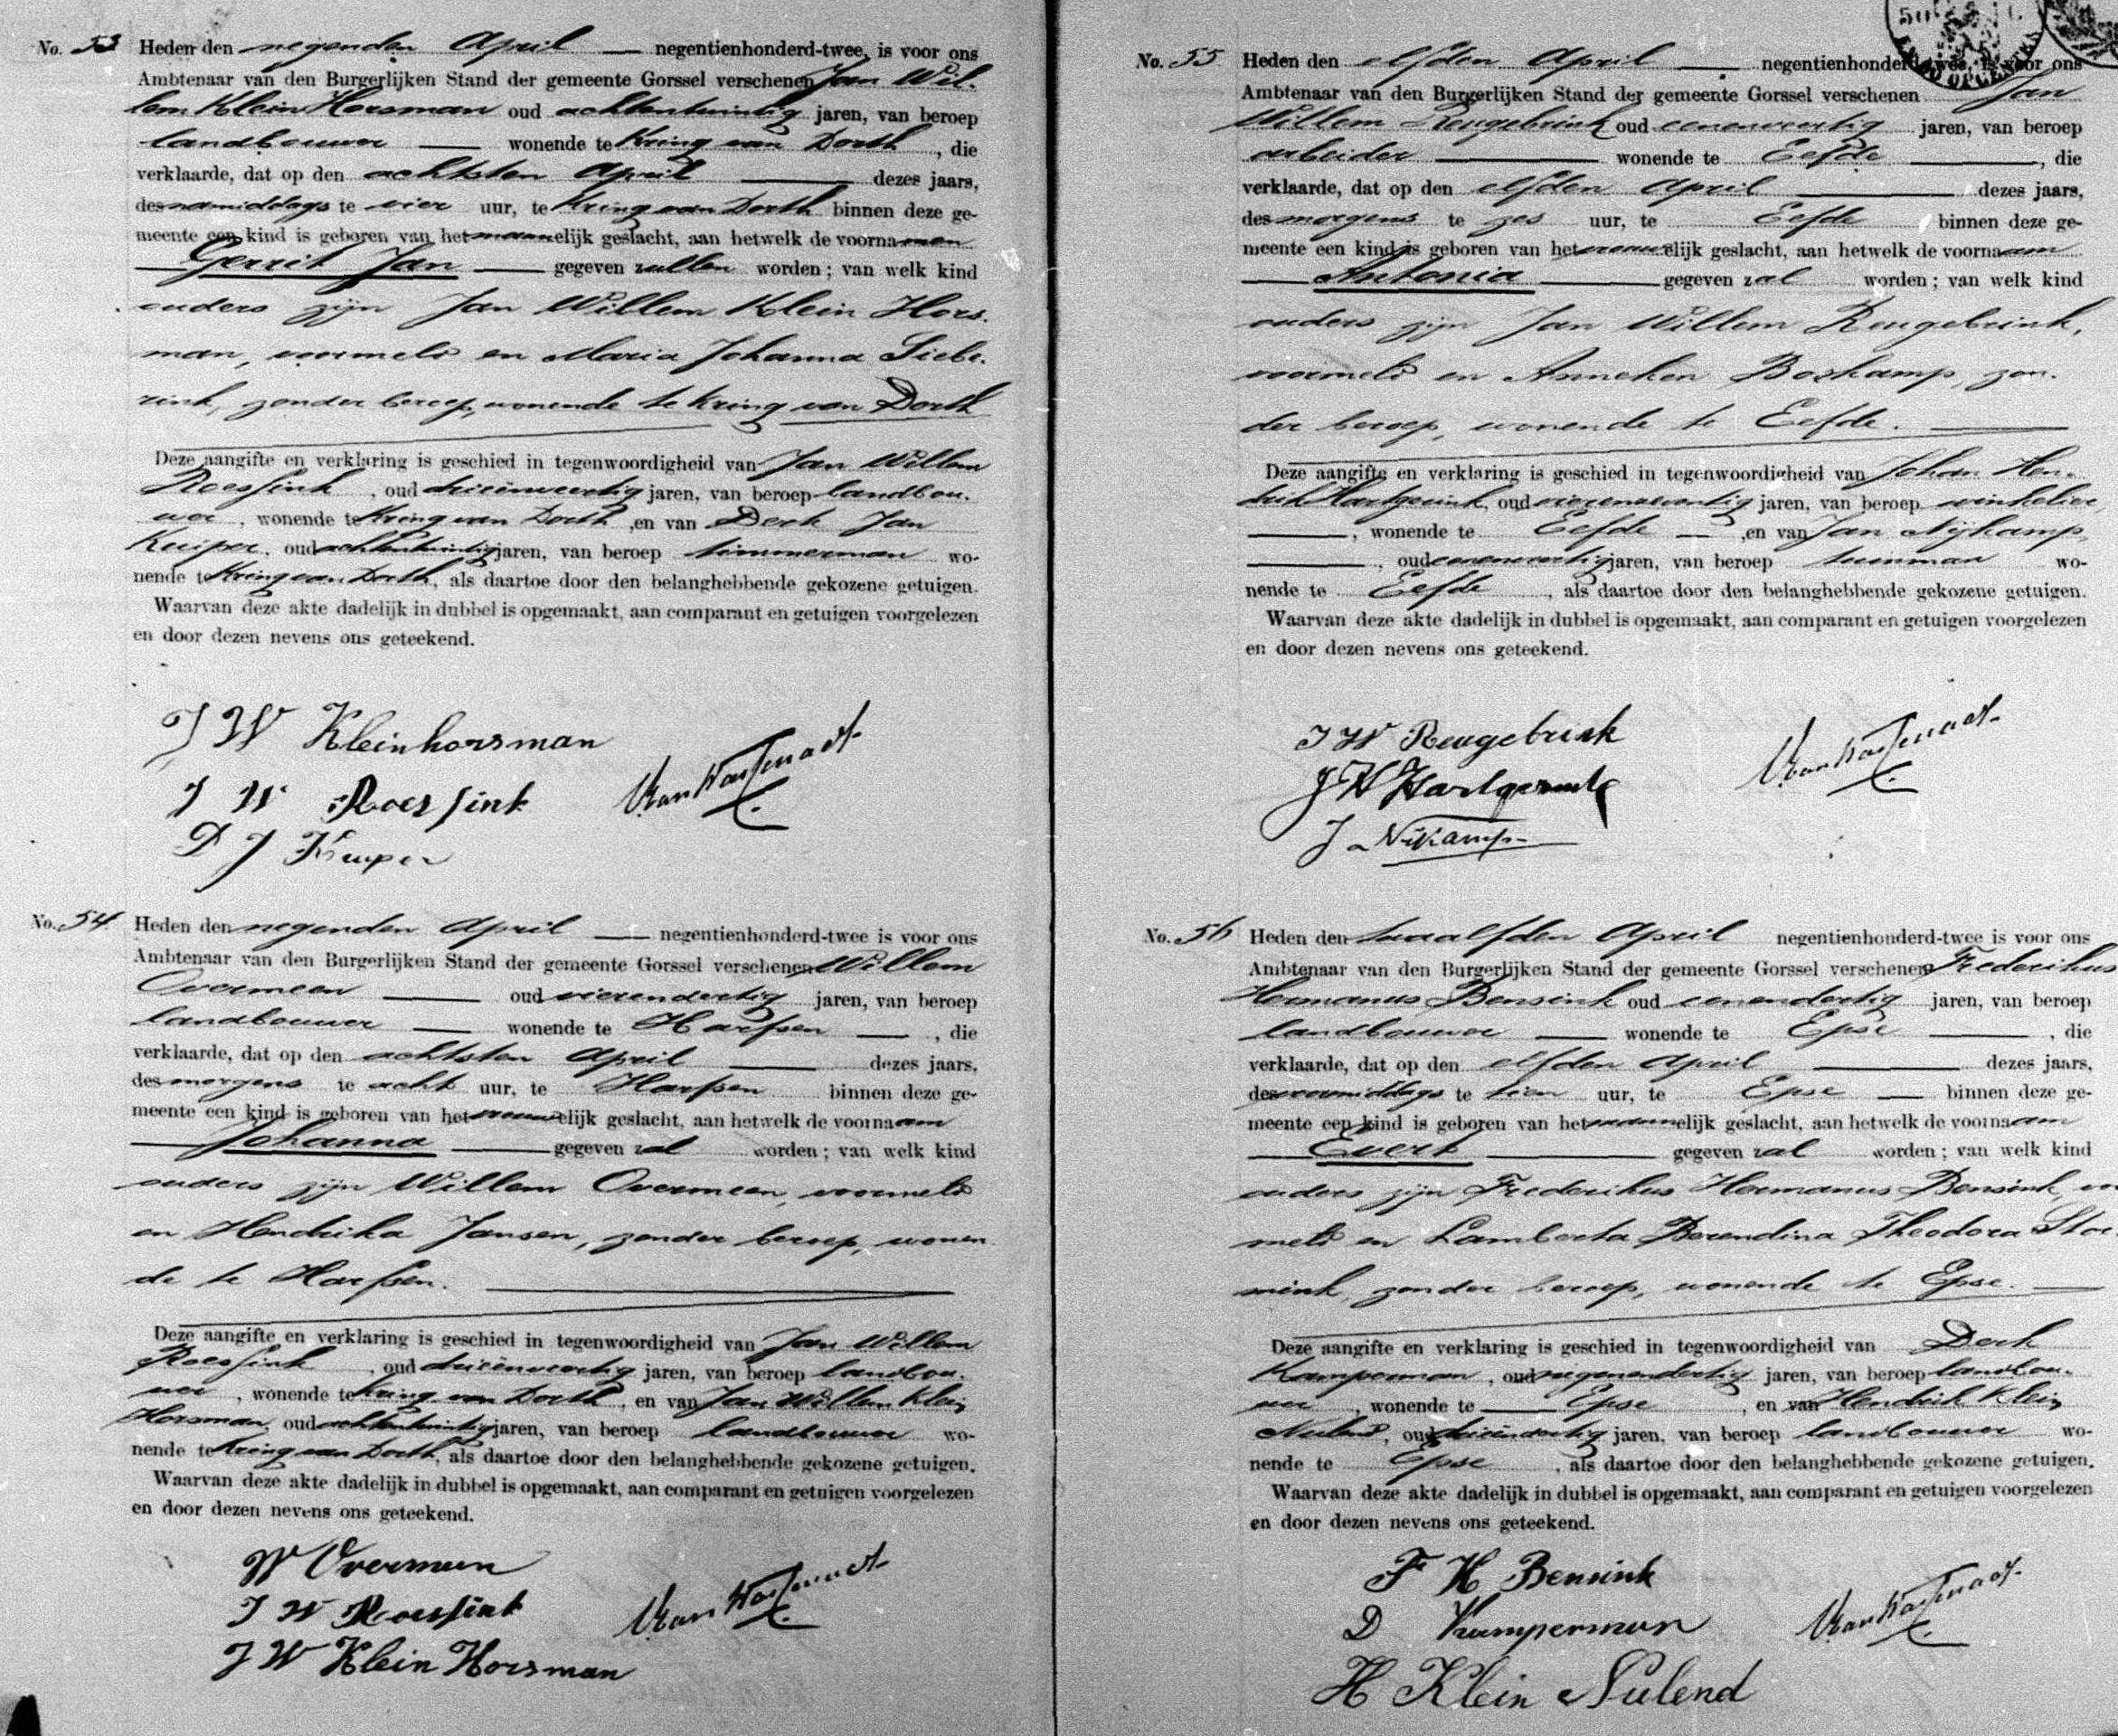 No. 53 Heden den negenden April negentienhonderd-twee, is voor ons
Ambtenaar van den Burgerlijken Stand der gemeente Gorssel verschenen Jan Wil-
lem Klein Horsman oud achtentwintig jaren, van beroep
landbouwer wonende te Kring van Dorth, die
verklaarde, dat op den achtsten April dezes jaars,
des namiddags te vier uur, te Kring van Dorth binnen deze ge-
meente een kind is geboren van het mannelijk geslacht, aan hetwelk de voornamen
Gerrit Jan gegeven zullen worden; van welk kind
ouders zijn Jan Willem Klein Hors-
man, voormeld en Maria Johanna Siebe-
rink, zonder beroep, wonende te Kring van Dorth
Deze aangifte en verklaring is geschied in tegenwoordigheid van Jan Willem
Roessink, oud drieënveertig jaren, van beroep landbou-
wer, wonende te Kring van Dorth, en van Derk Jan
Kuiper, oud achtentwintig jaren, van beroep timmerman wo-
nende te Kring van Dorth, als daartoe door den belanghebbende gekozene getuigen.
Waarvan deze akte dadelijk in dubbel is opgemaakt, aan comparant en getuigen voorgelezen
en door dezen nevens ons geteekend.
J W Kleinhorsman
J W Roessink
D J Kuiper
No. 54 Heden den negenden April negentienhonderd-twee is voor ons
Ambtenaar van den Burgerlijken Stand der gemeente Gorssel verschenen Willem
Overmeen oud vierendertig jaren, van beroep
landbouwer wonende te Harfsen, die
verklaarde, dat op den achtsten April dezes jaars,
des morgens te acht uur, te Harfsen binnen deze ge-
meente een kind is geboren van het vrouwelijk geslacht, aan hetwelk de voornaam
Johanna gegeven zal worden; van welk kind
ouders zijn Willem Overmeen, voormeld
en Hendrika Jansen, zonder beroep, wonen
de te Harfsen.
Deze aangifte en verklaring is geschied in tegenwoordigheid van Jan Willem
Roessink, oud drieënveertig jaren, van beroep landbou-
wer, wonende te Kring van Dorth, en van Jan Willem Klein
Horsman, oud achtentwintig jaren, van beroep landbouwer wo-
nende te Kring van Dorth, als daartoe door den belanghebbende gekozene getuigen.
Waarvan deze akte dadelijk in dubbel is opgemaakt, aan comparant en getuigen voorgelezen
en door dezen nevens ons geteekend.
W Overmeen
J W Roessink
J W Klein Horsman
No. 55 Heden den elfden April negentienhonderd-twee, is voor ons
Ambtenaar van den Burgerlijken Stand der gemeente Gorssel verschenen Jan
Willem Reugebrink oud eenenveertig jaren, van beroep
arbeider wonende te Eefde, die
verklaarde, dat op den elfden April dezes jaars,
des morgens te zes uur, te Eefde binnen deze ge-
meente een kind is geboren van het vrouwelijk geslacht, aan hetwelk de voornaam
Antonia gegeven zal worden; van welk kind
ouders zijn Jan Willem Reugebrink,
voormeld en Anneken Boskamp, zon-
der beroep, wonende te Eefde.
Deze aangifte en verklaring is geschied in tegenwoordigheid van Johan Hen-
drik Hartgerink, oud jaren, van beroep winkelier,
wonende te Eefde, en van Jan Nijkamp,
oud eenenveertig jaren, van beroep tuinman wo-
nende te Eefde, als daartoe door den belanghebbende gekozene getuigen.
Waarvan deze akte dadelijk in dubbel is opgemaakt, aan comparant en getuigen voorgelezen
en door dezen nevens ons geteekend.
J W Reugebrink
J H Hartgerink
J Nikamp
No. 56 Heden den twaalfden April negentienhonderd-twee is voor ons
Ambtenaar van den Burgerlijken Stand der gemeente Gorssel verschenen Frederikus
Hermanus Bensink oud eenendertig jaren, van beroep
landbouwer wonende te Epse, die
verklaarde, dat op den elfden April dezes jaars,
des voormiddags te tien uur, te Epse binnen deze ge-
meente een kind is geboren van het mannelijk geslacht, aan hetwelk de voornaam
Evert gegeven zal worden; van welk kind
ouders zijn Frederikus Hermanus Bensink,
meld en Lamberta Berendina Theodora
mink, zonder beroep, wonende te Epse.
Deze aangifte en verklaring is geschied in tegenwoordigheid van Derk
Kamperman, oud negenendertig jaren, van beroep landbou-
wer, wonende te Epse, en van Hendrik Klein
Nulend, oud drieëndertig jaren, van beroep landbouwer wo-
nende te Epse, als daartoe door den belanghebbende gekozene getuigen.
Waarvan deze akte dadelijk in dubbel is opgemaakt, aan comparant en getuigen voorgelezen
en door dezen nevens ons geteekend.
F H Bensink
D Kamperman
H Klein Nulend